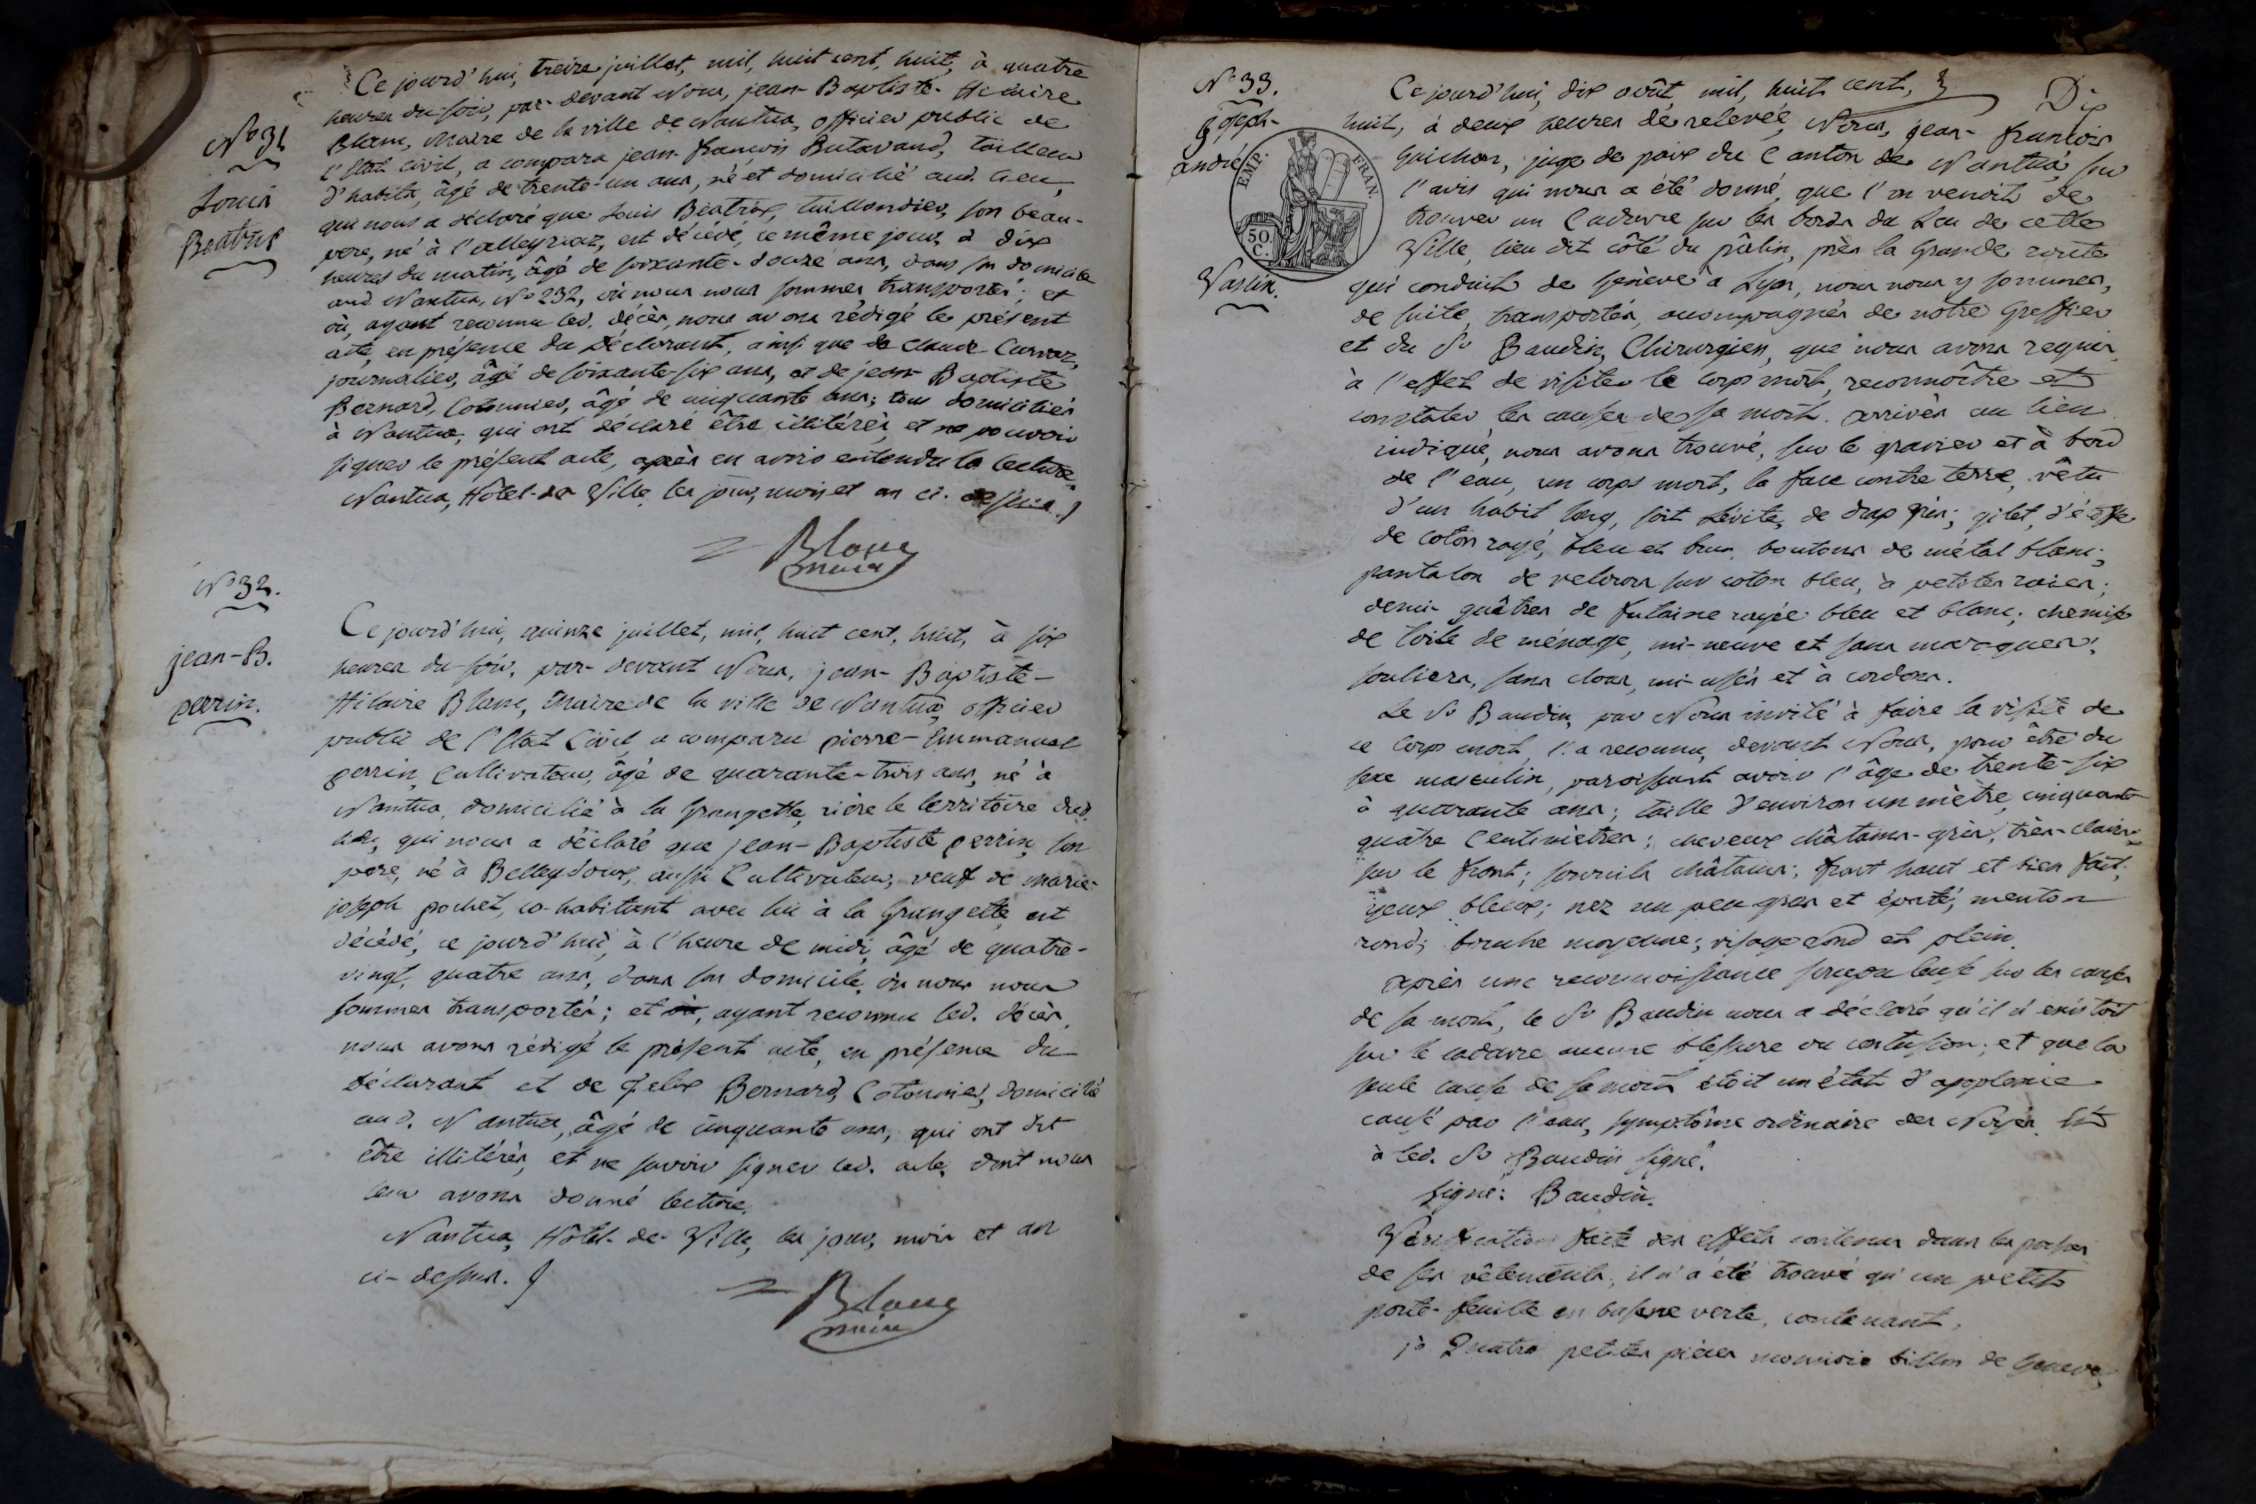 Ce jourd'hui, treize juillet, mil, huit cent, huit, à quatre
heures du soir, par-devant Nous, jean-Baptiste-Hilaire
Blanc, Maire de la ville de Nantua, officier public de
l'État civil, a comparu jean-françois Butavand, tailleur
d'habits, âgé de trente-un ans, né et domicilié aud. lieu,
qui nous a déclaré que Louis Béatrix, taillandier, son beau-
père, né à l'alleyriat, est décédé, ce même jour, à dix
heures du matin, âgé de soixante-douze ans, dans son domicile
aud. Nantua, No 232, où nous nous sommes transportés; et
où, ayant reconnu led. décès, nous avons rédigé le présent
acte, en présence du Déclarant, ainsi que de Claude Carraz,
journalier, âgé de soixante-six ans, et de jean-Baptiste
Bernard, Cotonnier, âgé de cinquante ans; tous domiciliés
à Nantua, qui ont déclaré être illitérés, et ne pouvoir
signer le présent acte, après en avoir entendu la lecture.
Nantua, Hôtel-de-Ville, les jour, mois et an ci-dessus.
Blanc
maire
No 31
Louis
Béatrix
No 32.
jean-B.
perrin.
Ce jourd'hui, quinze juillet, mil, huit cent, huit, à six
heures du soir, par-devant Nous, jean-Baptiste-
Hilaire Blanc, Maire de la ville de Nantua, officier
public de l'État Civil, a comparu pierre-Emmanuel
perrin, Cultivateur, âgé de quarante-trois ans, né à
Nantua, domicilié à la Grangette, rière le territoire dud.
lieu, qui nous a déclaré que jean-Baptiste perrin, son
père, né à Belleydoux, aussi Cultivateur, veuf de marie-
joseph pochet, co-habitant avec lui à la Grangette, est
décédé, ce jourd'hui, à l'heure de midi, âgé de quatre-
vingt, quatre ans, dans son domicile, où nous nous
sommes transportés; et où, ayant reconnu led. décès,
nous avons rédigé le présent acte, en présence du
déclarant et de felix Bernard, Cotonnier, domicilié
aud. Nantua, âgé de cinquante ans, qui ont dit
être illitérés, et ne savoir signer led. acte, dont nous
leur avons donné lecture.
Nantua, Hôtel-de-Ville, les jour, mois et an
ci-dessus.
Blanc
maire
No 33.
joseph-
andré
Vaslin.
EMP. FRAN.
50.
C.
Dix
Ce jourd'hui, dix août, mil, huit cent,
huit, à deux heures de relevée, Nous, jean-françois
Guichon, juge de paix du Canton de Nantua, sur
l'avis qui nous a été donné, que l'on venoit de
trouver un Cadavre sur les bords du Lac de cette
Ville, lieu dit côté du pâlin, près la grande route
qui conduit de Genève à Lyon, nous nous y sommes,
de suite, transportés, accompagnés de notre Greffier
et du Sr Baudin, Chirurgien, que nous avons requis
à l'effet de visiter le corps mort, reconnoître et
constater les causes de sa mort. arrivés au lieu
indiqué, nous avons trouvé, sur le gravier et à bord
de l'eau, un corps mort, la face contre terre, vêtu
d'un habit long, soit Lévite, de drap gris; gilet d'étoffe
de coton rayé, bleu et brun, boutons de métal blanc;
pantalon de velours sur coton bleu, à petites raies;
demi-guêtres de futaine rayée bleu et blanc; chemise
de toile de ménage, mi-neuve et sans marques;
souliers, sans clous, mi-usés et à cordons.
Le Sr Baudin, par Nous invité à faire la visite de
ce corps mort, l'a reconnu, devant Nous, pour être du
sexe masculin, paroissant avoir l'âge de trente-six
à quarante ans; taille d'environ un mètre, cinquante
quatre Centimètres; cheveux châtains-gris, très-clairs
sur le front; sourcils châtains; front haut et bien fait;
yeux bleus; nez un peu gros et épaté; menton
rond; bouche moyenne; visage rond et plein.
après une reconnoissance scrupuleuse sur les causes
de sa mort, le Sr Baudin nous a déclaré qu'il n'existoit
sur le cadavre aucune blessure ou contusion; et que la
seule cause de sa mort étoit un état d'applexie
causé par l'eau, symptôme ordinaire des Noyés. Et
a led. Sr Baudin signé.
Signé: Baudin.
Vérification faite des effets contenus dans les poches
de ses vêtements, il n'a été trouvé qu'un petit
porte-feuille en basane verte, contenant,
1o Quatre petites pièces monnoie billon de Genève,